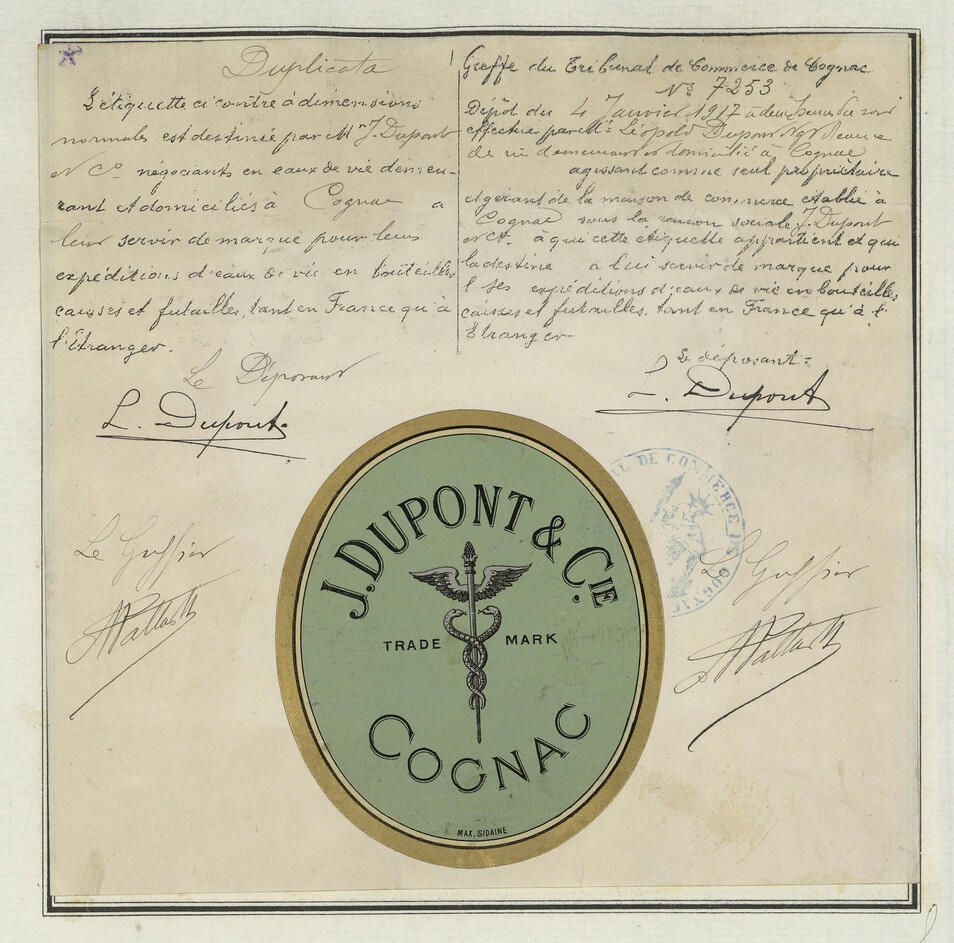 Duplicata
L'étiquette ci contre à dimensions
normales est destinée par Mr J. Dupont
& Co négociants en eaux de vie demeu-
rant et domiciliés à Cognac a
leur servir de marque pour leurs
expéditions d'eaux de vie en bouteilles
caisses et futailles, tant en France qu'à
l'Etranger.
Le Déposant
L. Dupont
Le Greffier
Greffe du Tribunal de Commerce de Cognac
No 7253
Dépôt du 4 Janvier 1917 à deux heures du soir
effectué par Mr Léopold Dupont Ngt
de vie demeurant et domicilié à Cognac
agissant comme seul propriétaire
et gérant de la maison de commerce établie à
Cognac sous la raison sociale J. Dupont
& Co. à qui cette étiquette appartient et qui
la destine a lui servir de marque pour
ses expéditions d'eaux de vie en bouteilles,
caisses et futailles, tant en France qu'à l'
Etranger
Le déposant
L. Dupont
Le Greffier
J. DUPONT & CIE
TRADE MARK
COGNAC
MAX. SIDAINE
AL DE COMMERCE DE COGNAC